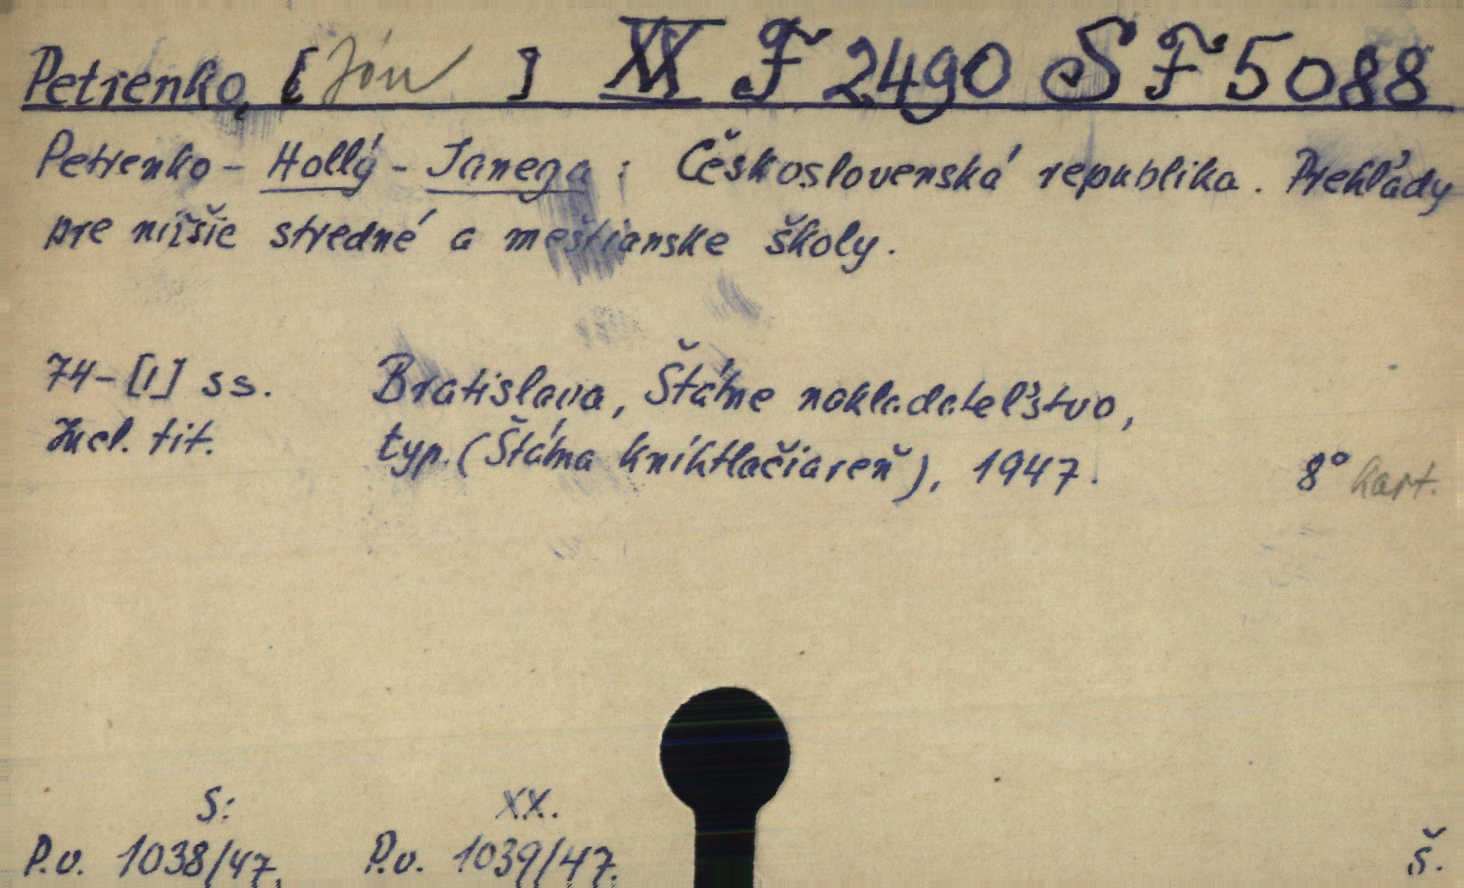 Petrenko, [Ján] XX F 2490 S F 5088
Petrenko - Hollý - Janega: Československá republika. Prehľady
pre nižšie stredné a meštianske školy.
74-[1] ss. Bratislava, Štátne nakladateľstvo,
Incl. tit. typ. (Štátna kníhtlačiareň), 1947. 8° kart.
S: XX.
P.v. 1038/47. P.v. 1039/47. Š.